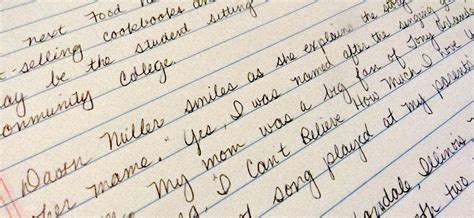 next Food
-selling cookbooks an
ay be the student sitting
ommunity College.
Dawn Miller smiles as she explains the story
her name. "Yes, I was named after the singing g
My mom was a big fan of Tony Orlando
g, I Can't Believe How Much I love
of song played at my parents
dale, Illinois
th two